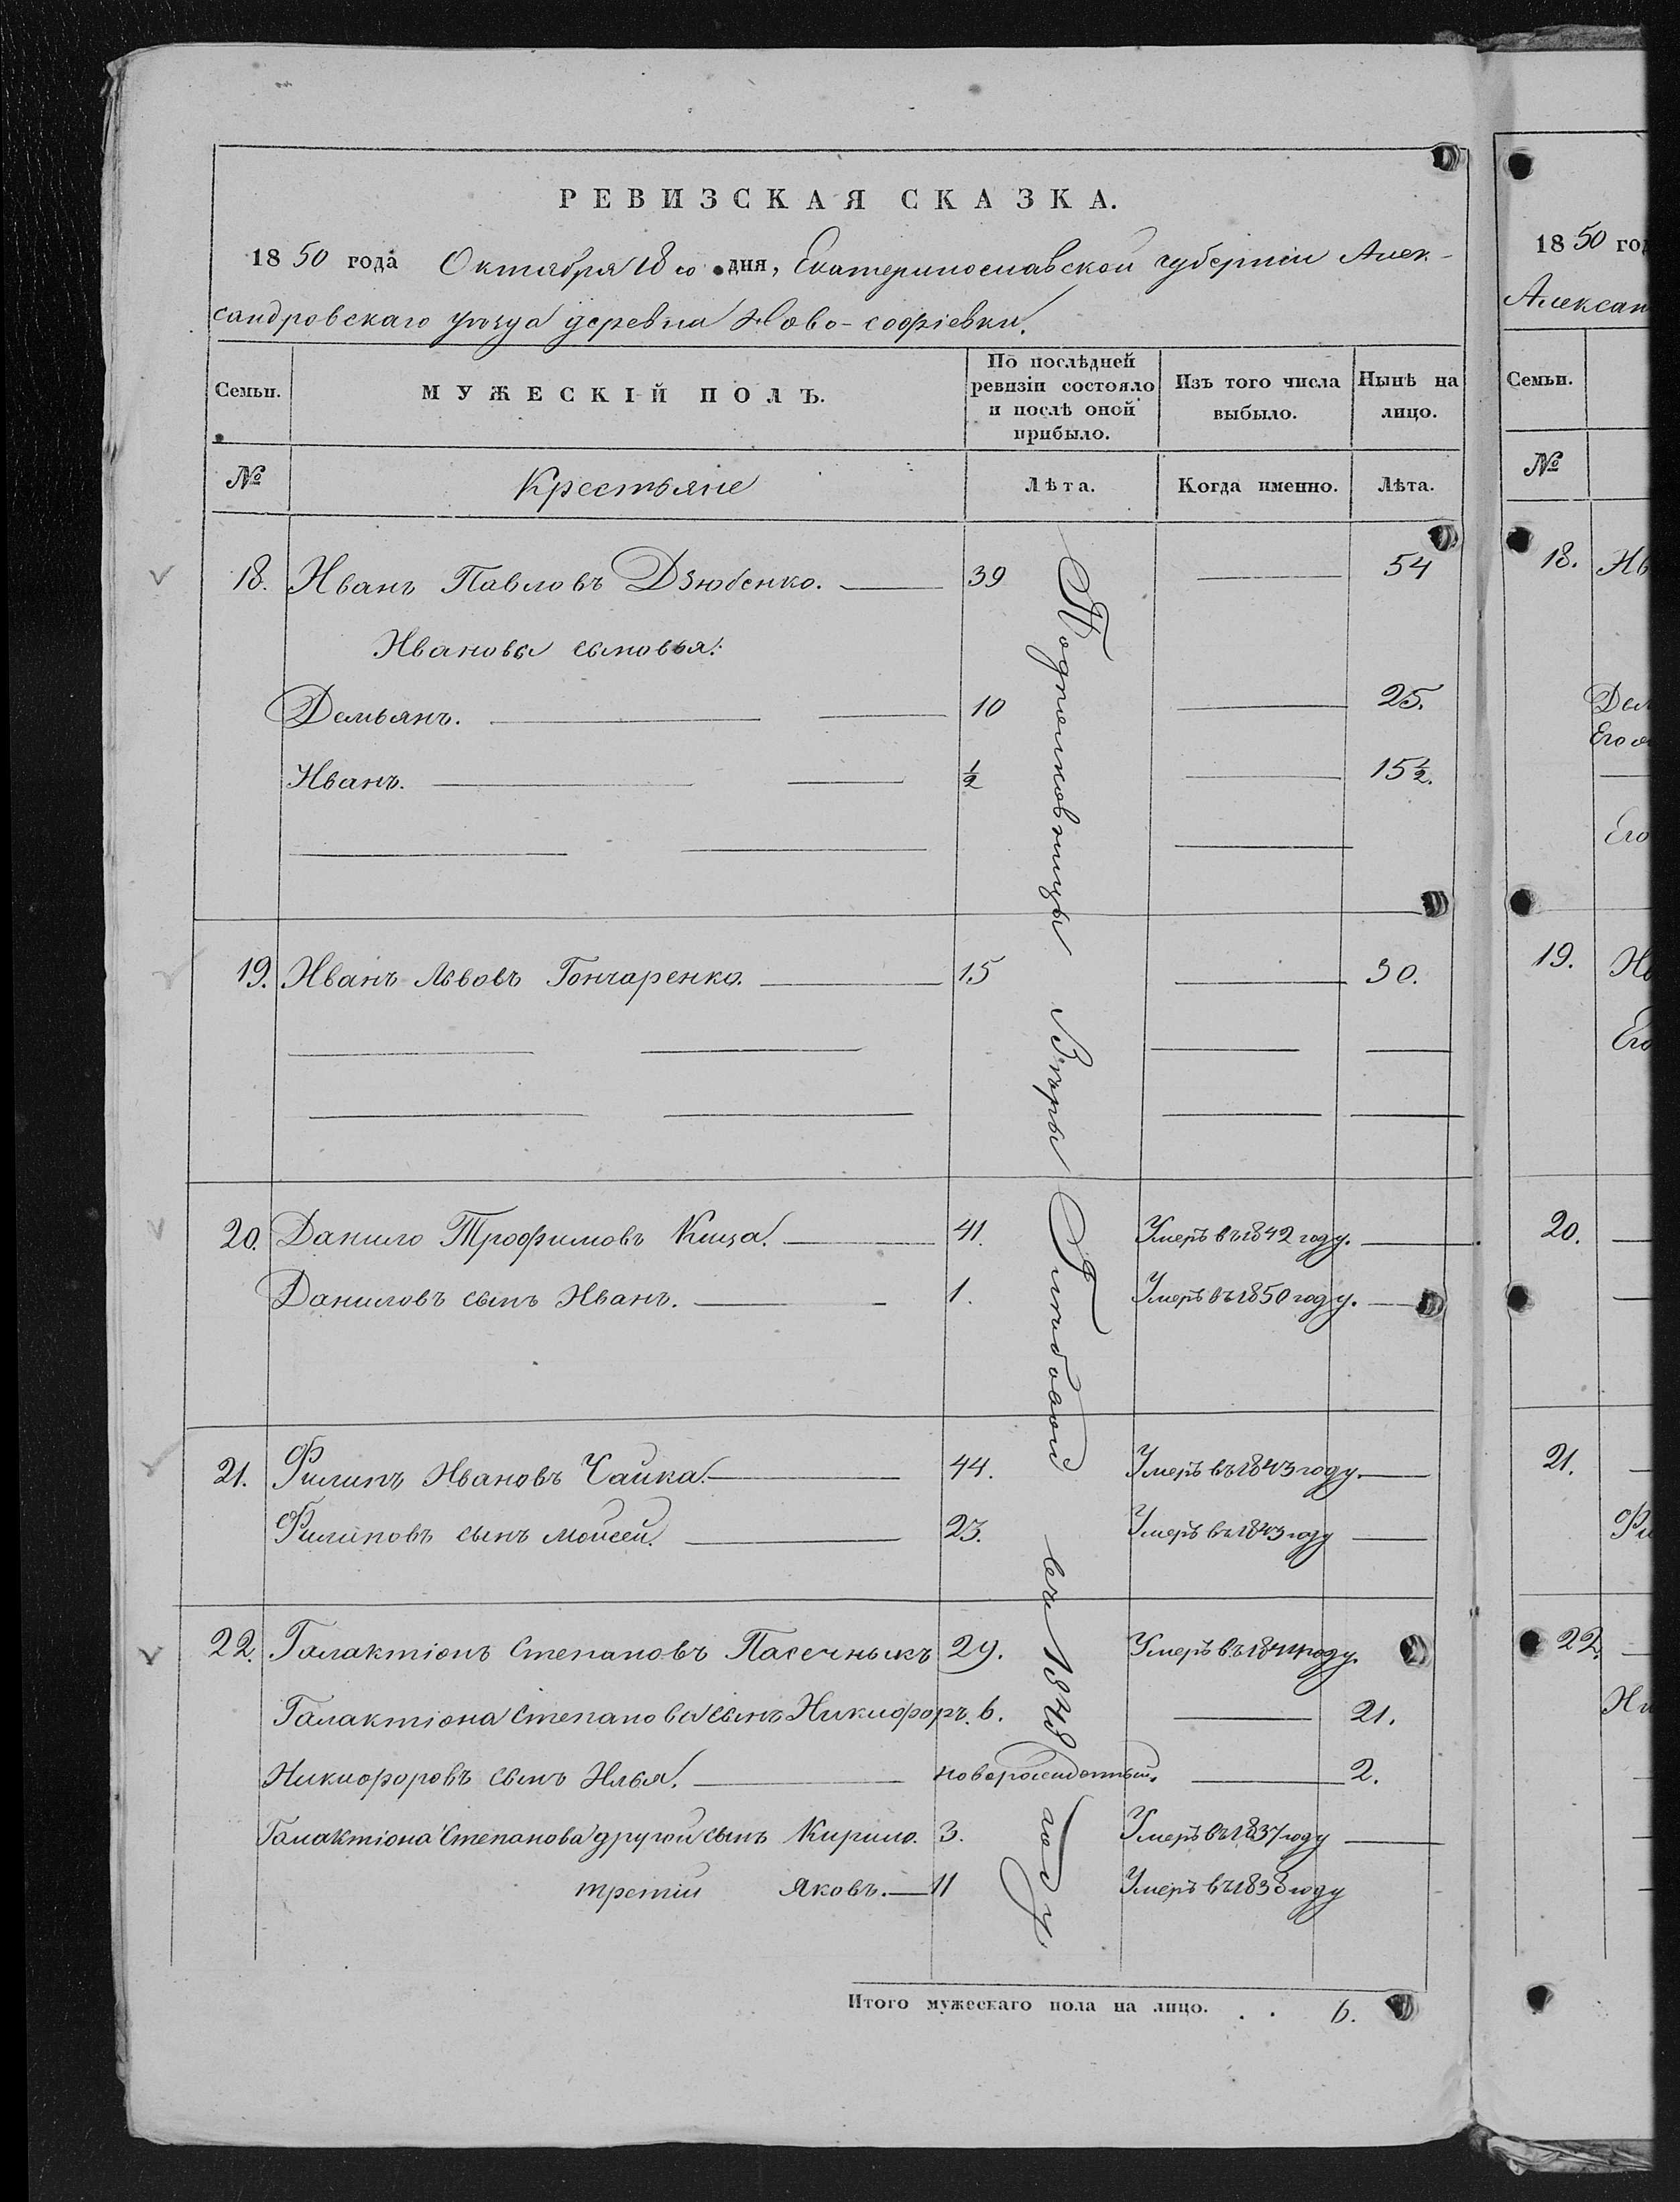 РЕВИЗСКАЯ СКАЗКА.
1850 года Октября 18го дня, Екатеринославской губернiи Алек-
сандровскаго уѣзда деревни Ново-софiевки.
Семьи.
МУЖЕСКIЙ ПОЛЪ.
По послѣдней ревизiи состояло и послѣ оной прибыло.
Изъ того числа выбыло.
Нынѣ на лицо.
№ Крестьяне Лѣта. Когда именно. Лѣта.
18. Иванъ Павловъ Дзюбенко. 39 54
Ивановы сыновья:
Демьянъ. 10 25.
Иванъ. ½ 15½.
19. Иванъ Львовъ Гончаренко. 15 30.
20. Данило Трофимовъ Кица. 41. Умеръ въ 1842 году.
Даниловъ сынъ Иванъ. 1. Умеръ въ 1850 году.
21. Филипъ Ивановъ Чайка. 44. Умеръ въ 1843 году.
Филиповъ сынъ Моисей. 23. Умеръ въ 1843 году
22. Галактiонъ Степановъ Пасечныкъ 29. Умеръ въ 1841 году.
Галактiона Степанова сынъ Никифоръ. 6. 21.
Никифоровъ сынъ Илья. новорожденный. 2.
Галактiона Степанова другой сынъ Кирило. 3. Умеръ въ 1837 году
третiй Яковъ. 11 Умеръ въ 1838 году
Подполковницы Вѣры Глѣбовой въ 1848 году.
Итого мужескаго пола на лицо. . . 6.
1850 го
Алексан
Семьи.
№
18. Ив
Дем
Его
Его
19. Ив
Его
20.
21.
Фи
22.
Ни